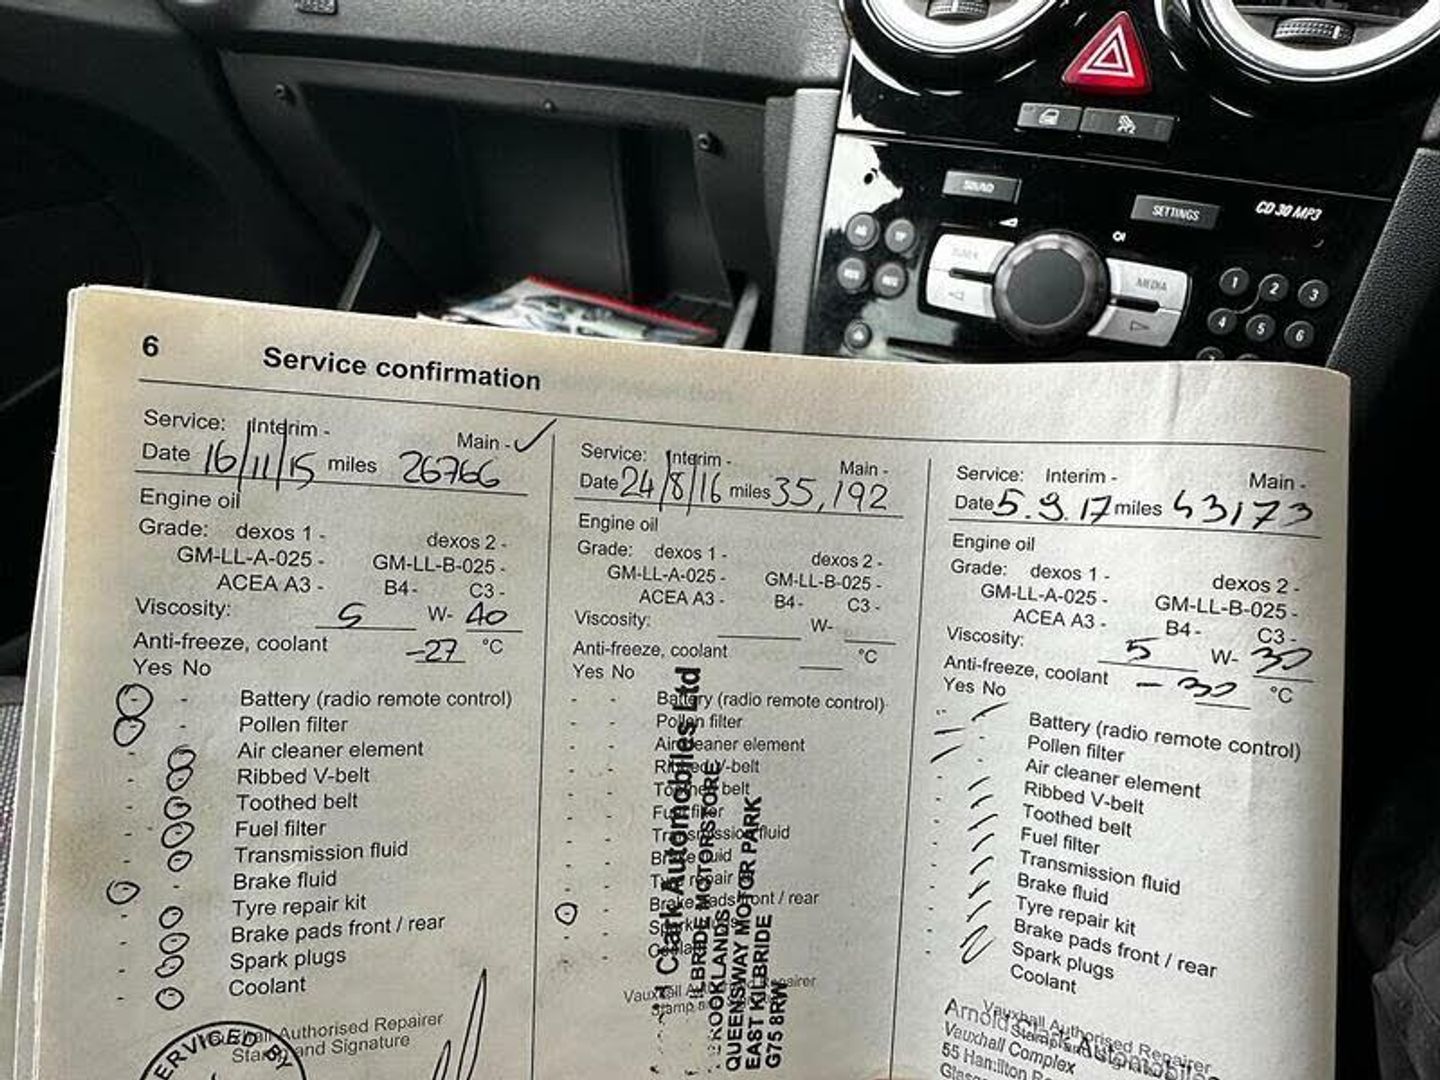 SOUND
SETTINGS
CD 30 MP3
MEDIA
1 2 3
4 5 6
6 Service confirmation
Service: Interim - Main - ✓
Date 16/11/15 miles 26766
Engine oil
Grade: dexos 1 - dexos 2 -
GM-LL-A-025 - GM-LL-B-025 -
ACEA A3 - B4 - C3 -
Viscosity: 5 W- 40
Anti-freeze, coolant -27 °C
Yes No
Battery (radio remote control)
Pollen filter
Air cleaner element
Ribbed V-belt
Toothed belt
Fuel filter
Transmission fluid
Brake fluid
Tyre repair kit
Brake pads front / rear
Spark plugs
Coolant
Vauxhall Authorised Repairer
Stamp and Signature
SERVICED BY
Service: Interim - Main -
Date 24/8/16 miles 35,192
Engine oil
Grade: dexos 1 - dexos 2 -
GM-LL-A-025 - GM-LL-B-025 -
ACEA A3 - B4 - C3 -
Viscosity: W-
Anti-freeze, coolant °C
Yes No
Battery (radio remote control)
Pollen filter
Air cleaner element
Ribbed V-belt
Toothed belt
Fuel filter
Transmission fluid
Brake fluid
Tyre repair
Brake pads front / rear
Spark
Vauxhall Repairer
Clark Automobiles Ltd
KILBRIDE MOTORSTORE
BROOKLANDS
QUEENSWAY MOTOR PARK
EAST KILBRIDE
G75 8RW
Service: Interim - Main -
Date 5.9.17 miles 43173
Engine oil
Grade: dexos 1 - dexos 2 -
GM-LL-A-025 - GM-LL-B-025 -
ACEA A3 - B4 - C3 -
Viscosity: 5 W- 30
Anti-freeze, coolant -30 °C
Yes No
Battery (radio remote control)
Pollen filter
Air cleaner element
Ribbed V-belt
Toothed belt
Fuel filter
Transmission fluid
Brake fluid
Tyre repair kit
Brake pads front / rear
Spark plugs
Coolant
Vauxhall Authorised Repairer
Arnold Clark Automobiles
Vauxhall Complex
55 Hamilton